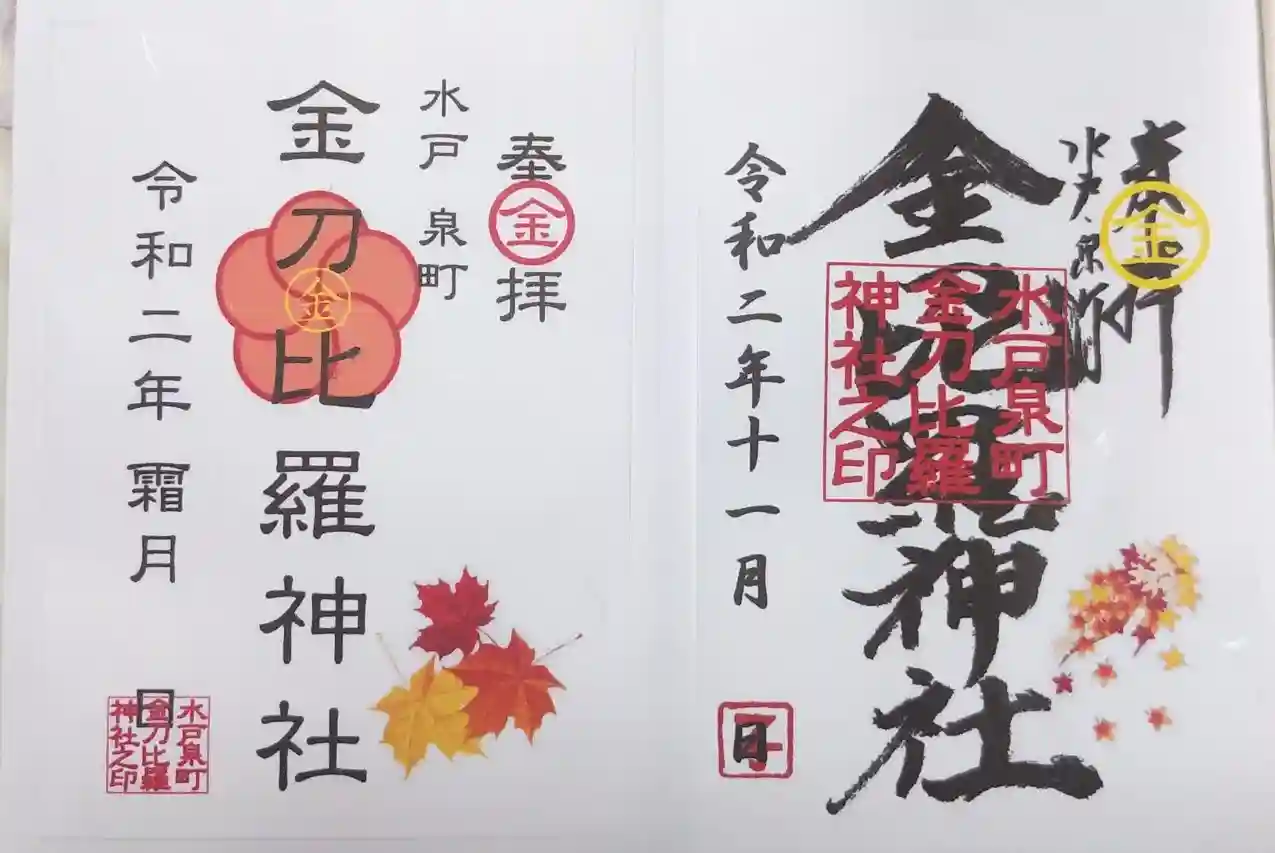 奉拝
金
水戸 泉町
金刀比羅神社
金
令和二年 霜月 日
水戸泉町
金刀比羅
神社之印
奉拝
金
水戸 泉町
金刀比羅神社
水戸泉町
金刀比羅
神社之印
令和二年十一月 日